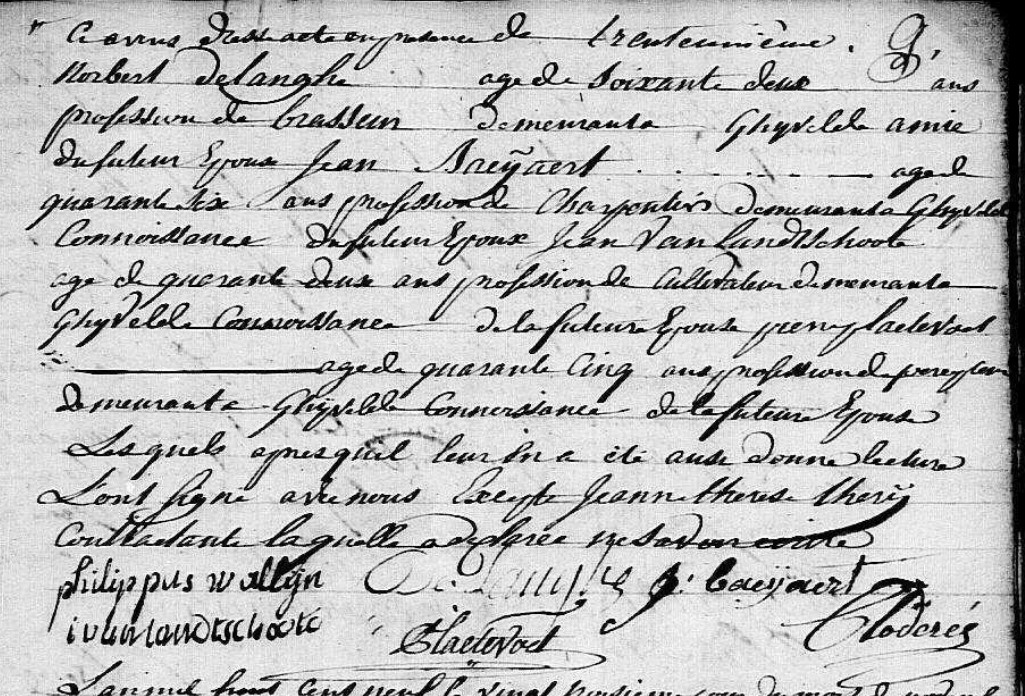 avons dressé acte en presence de trenteunième.
Norbert Delanghe agé de Soixante deux ans
profession de brasseur demeurant a Ghyvelde amie
du futeur Epoux Jean Baeÿaert agé de
quarante Six ans profession de Charpentier demeurant a Ghyvelde
Connoissance du futeur Epoux Jean Vanlandtschoote
age de quarante deux ans profession de Cultivateur demeurant a
Ghyvelde Connoissance de la futeure Epouse Plaetevoet
age de quarante Cinq ans profession de
demeurant a Ghyvelde Connoissance de la futeure Epouse
Lesquels apres quil leur en a été aussi donné lecture
L'ont signé avec nous Excepte Jeanne therese therÿ
Contractante laquelle a declaree ne savoir
philippus wullÿn De Langhe J: baeÿaert
i vanlandtschoote Plaetevoet
L'an mil huit Cent neuf le vingt jour du mois de